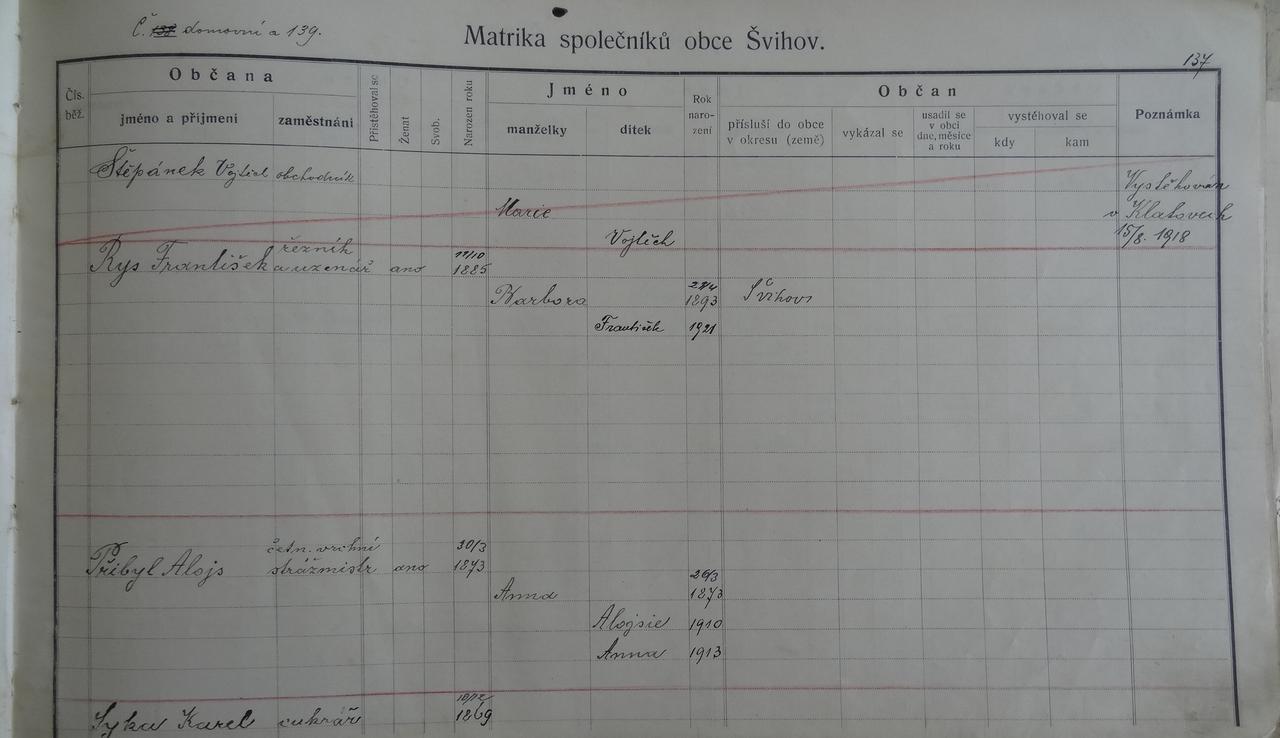 Č. 138 domovní a 139.
Matrika společníků obce Švihov.
137
Čís. běž.
Občana
jméno a příjmení
zaměstnání
Přistěhoval se
Ženat
Svob.
Narozen roku
Jméno
manželky
dítek
Rok naro- zení
Občan
přísluší do obce v okresu (země)
vykázal se
usadil se v obci dne, měsíce a roku
vystěhoval se
kdy
kam
Poznámka
Štěpánek Vojtěch obchodník
Vystěhován
Marie
v Klatovech
Vojtěch
15/8. 1918
řezník
11/10
Rys František a uzenář ano 1885
Barbora 1893 Švihov
František 1921
četn. vrchní
30/3
Přibyl Alojs strážmistr ano 1873
26/3
Anna 1873
Alojsie 1910
Anna 1913
10/12
Syka Karel cukrář 1869